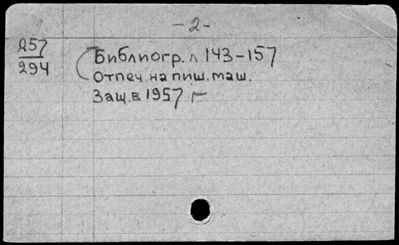 -2-
257
294
Библиогр. л 143-157
Отпеч. на пиш. маш.
Защ. в 1957 г